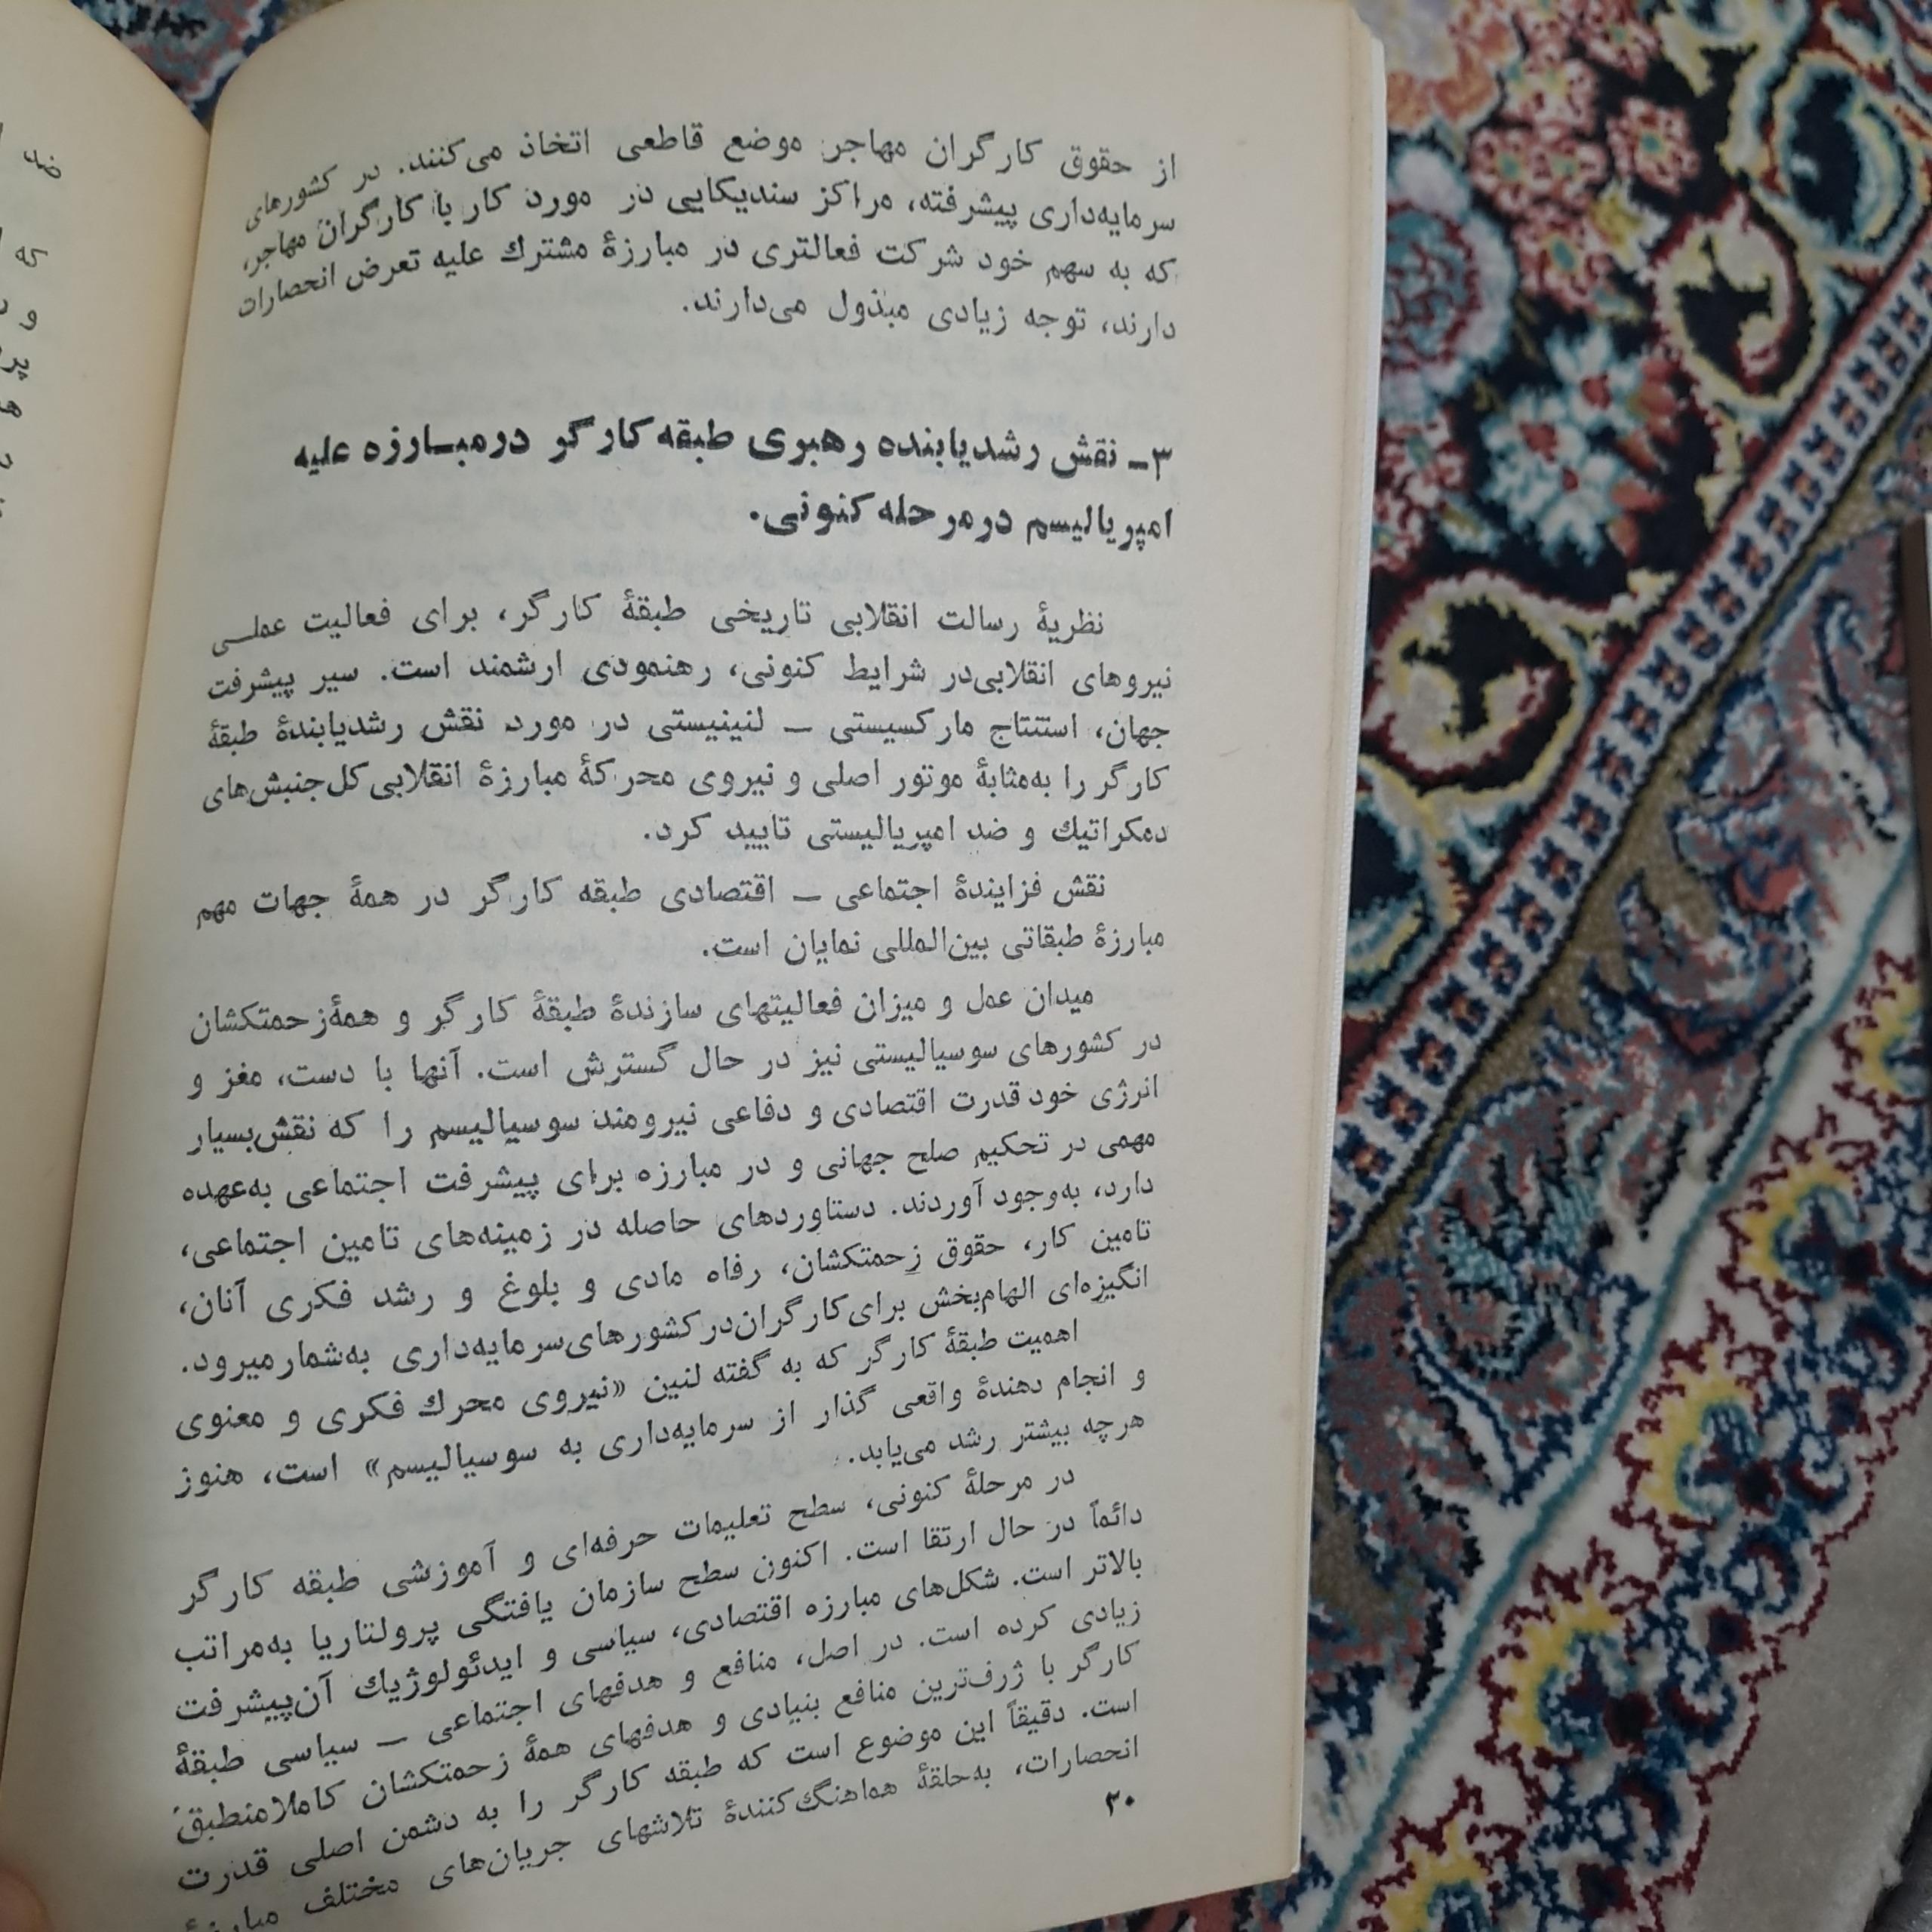 از حقوق کارگران مهاجر موضع قاطعی اتخاذ می‌کنند. در کشورهای
سرمایه‌داری پیشرفته، مراکز سندیکایی در مورد کار با کارگران مهاجر،
که به سهم خود شرکت فعالتری در مبارزهٔ مشترك علیه تعرض انحصارات
دارند، توجه زیادی مبذول می‌دارند.
۳ـ نقش رشدیابنده رهبری طبقه کارگر درمبـارزه علیه
امپریالیسم درمرحله کنونی.
نظریهٔ رسالت انقلابی تاریخی طبقهٔ کارگر، برای فعالیت عملـی
نیروهای انقلابی‌در شرایط کنونی، رهنمودی ارشمند است. سیر پیشرفت
جهان، استنتاج مارکسیستی ـ لنینیستی در مورد نقش رشدیابندهٔ طبقهٔ
کارگر را به‌مثابهٔ موتور اصلی و نیروی محرکهٔ مبارزهٔ انقلابی کل‌جنبش‌های
دمکراتیك و ضد امپریالیستی تایید کرد.
نقش فزایندهٔ اجتماعی ـ اقتصادی طبقه کارگر در همهٔ جهات مهم
مبارزهٔ طبقاتی بین‌المللی نمایان است.
میدان عمل و میزان فعالیتهای سازندهٔ طبقهٔ کارگر و همهٔ‌زحمتکشان
در کشورهای سوسیالیستی نیز در حال گسترش است. آنها با دست، مغز و
انرژی خود قدرت اقتصادی و دفاعی نیرومند سوسیالیسم را که نقش‌بسیار
مهمی در تحکیم صلح جهانی و در مبارزه برای پیشرفت اجتماعی به‌عهده
دارد، به‌وجود آوردند. دستاوردهای حاصله در زمینه‌های تامین اجتماعی،
تامین کار، حقوق زحمتکشان، رفاه مادی و بلوغ و رشد فکری آنان،
انگیزه‌ای الهام‌بخش برای‌کارگران‌در‌کشورهای‌سرمایه‌داری به‌شمارمیرود.
اهمیت طبقهٔ کارگر که به گفته لنین «نیروی محرك فکری و معنوی
و انجام دهندهٔ واقعی گذار از سرمایه‌داری به سوسیالیسم» است، هنوز
هرچه بیشتر رشد می‌یابد.
در مرحلهٔ کنونی، سطح تعلیمات حرفه‌ای و آموزشی طبقه کارگر
دائماً در حال ارتقا است. اکنون سطح سازمان یافتگی پرولتاریا به‌مراتب
بالاتر است. شکل‌های مبارزه اقتصادی، سیاسی و ایدئولوژیك آن‌پیشرفت
زیادی کرده است. در اصل، منافع و هدفهای اجتماعی ـ سیاسی طبقهٔ
کارگر با ژرف‌ترین منافع بنیادی و هدفهای همهٔ زحمتکشان کاملا‌منطبق
است. دقیقاً این موضوع است که طبقه کارگر را به دشمن اصلی قدرت
انحصارات، به‌حلقهٔ هماهنگ‌کنندهٔ تلاشهای جریان‌های مختلف
۳۰